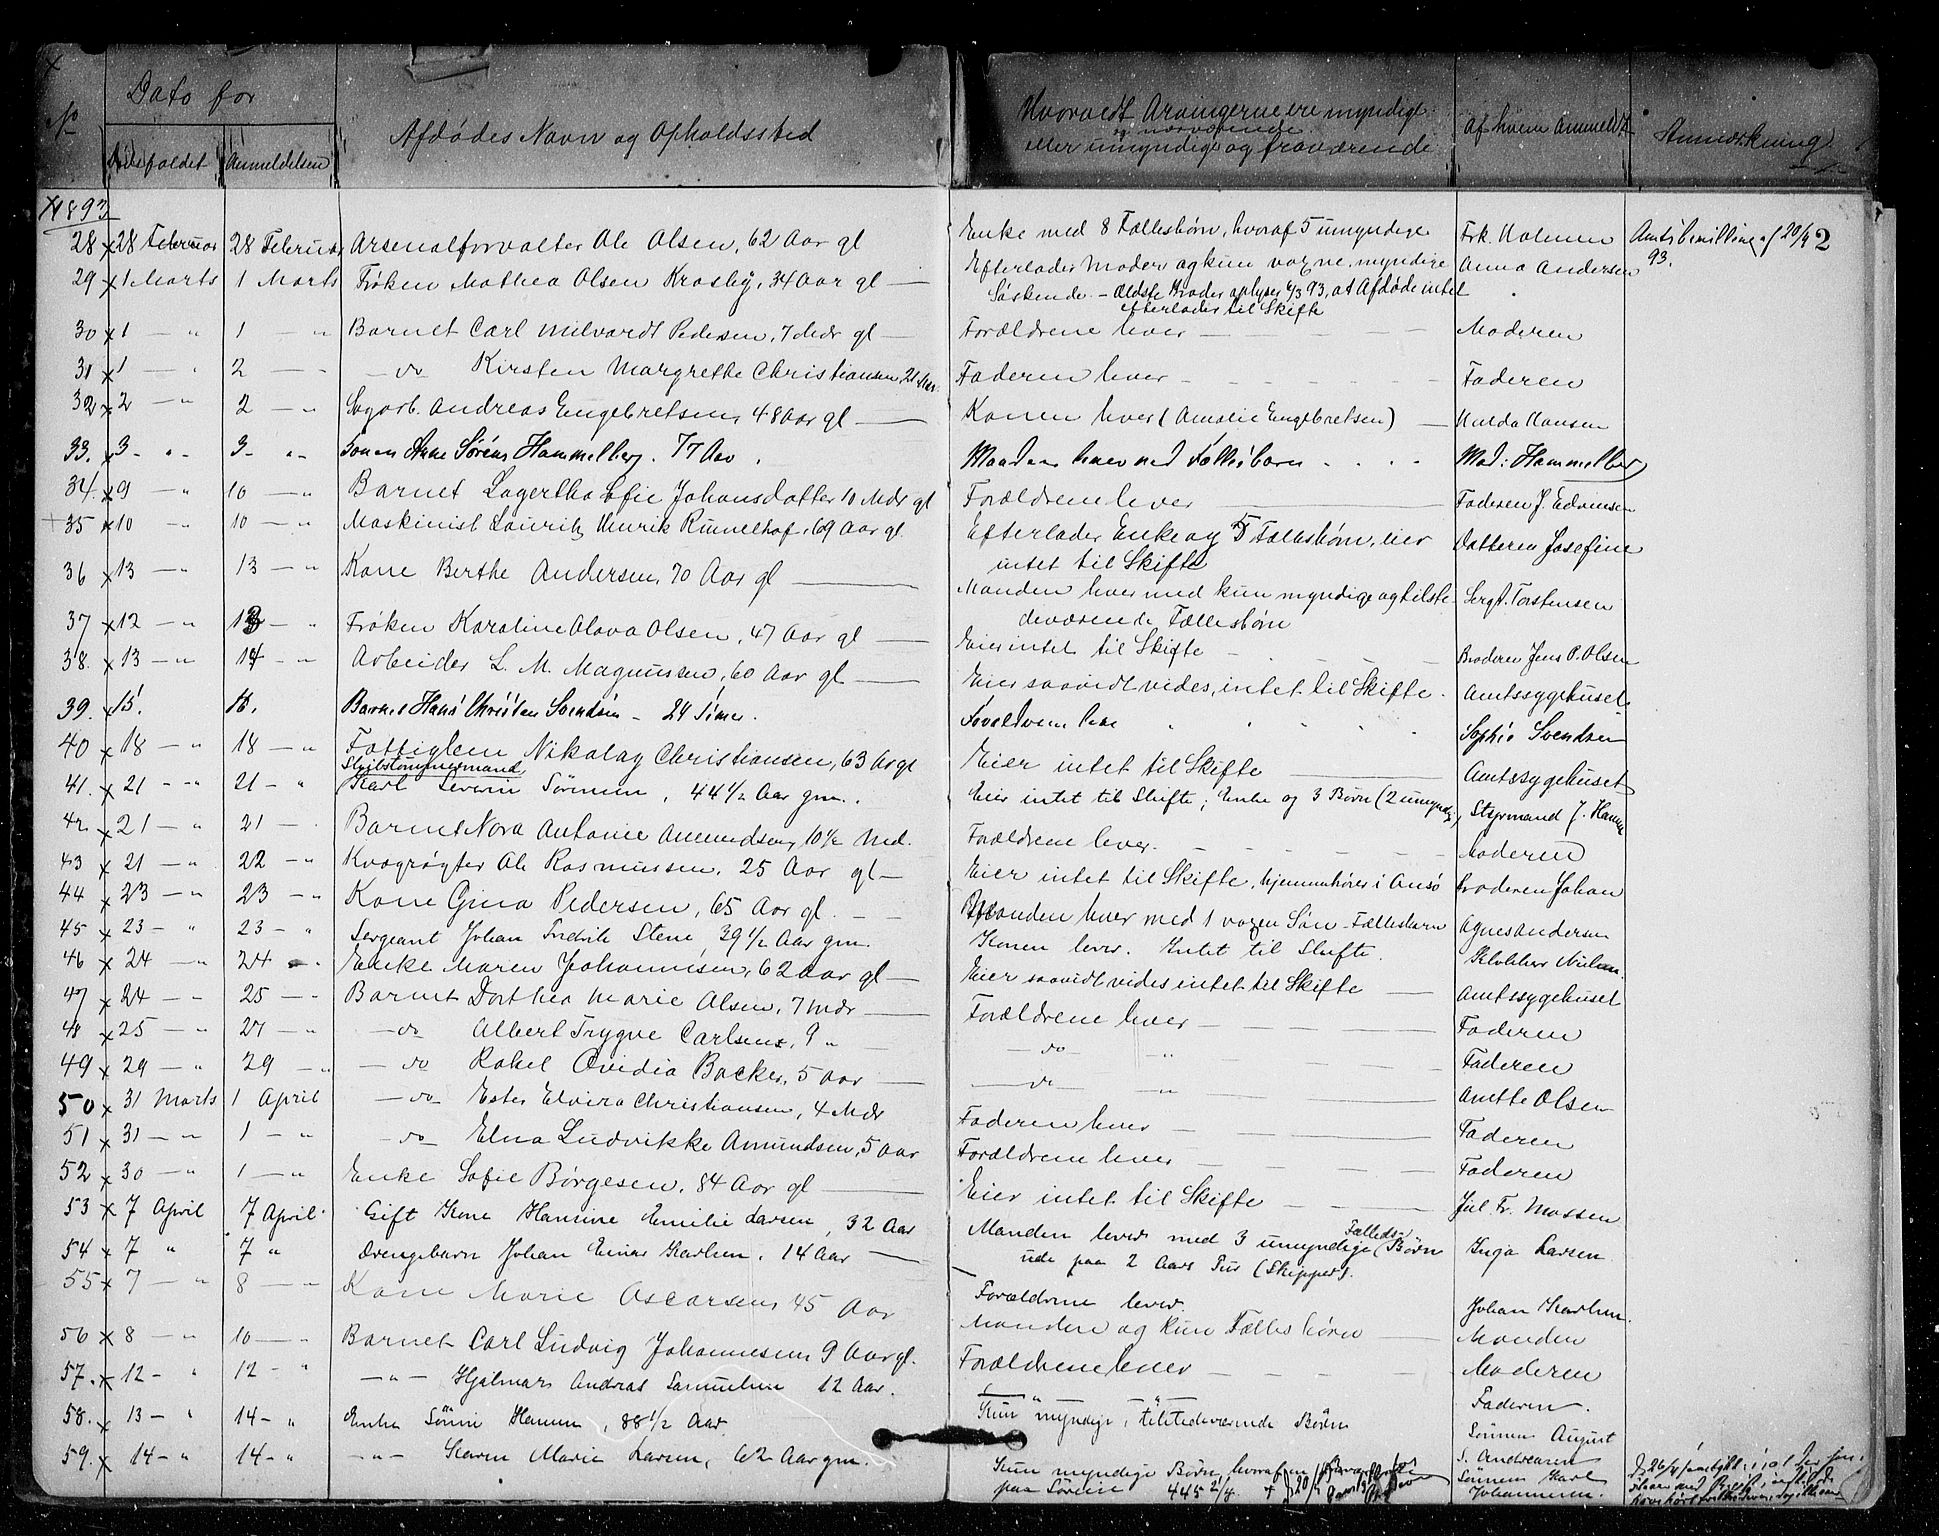 No
Dato for
Dødsfaldet
Anmeldelsen
Afdødes Navn og Opholdssted
Hvorvidt Arvingerne ere myndige
og nærværende
eller umyndige og fraværende
Af hvem Anmeldt
Anmærkning
1893
2
28 x 28 Februar 28 Februar Arsenalforvalter Ole Olsen, 62 Aar gl Enke med 8 Fællesbørn, hvoraf 5 umyndige Frk. Holmen Amtsbevilling af 20/4 93.
29 x 1 Marts 1 Marts Frøken Mathea Olsen Krosby, 34 Aar gl — Efterlader Moder og kun voxne, myndige Anna Andersen
Søskende. – Ældste Broder oplyser 6/3 93, at Afdøde intet
efterlader til Skifte
30 x 1 — " 1 — " Barnet Carl Milvardt Pedersen, 7 Mdr gl — Forældrene lever — Moderen
31 x 1 — " 2 — - — do Kirsten Margrethe Christiansen, Faderen lever - Faderen
32 x 2 — " 2 — " Sagarb. Andreas Engebretsen, 48 Aar gl — Konen lever (Amalie Engebretsen) — Hulda Hansen
33. x 3 - " - 3 - " - Konen Anne Sørine Hammelberg. 77 Aar. Manden lever med Fællesbørn . . . . Mad: Hammelberg
34. x 9 — " 10 — " Barnet Lagertha Sofie Johansdatter 10 Mdr gl Forældrene lever — Faderen J. Edvinsen
35 x 10 — " 10 — " Maskinist Lauritz Henrik Rumelhof, 69 Aar gl. Efterlader Enke og 5 Fællesbørn, eier Datteren Josefine
intet til Skifte
36 x 13 — " 13 — " Kone Berthe Andersen, 70 Aar gl — Manden lever med kun myndige og tilste- Sergt. Torstensen
deværende Fællesbørn
37 x 12 — " 13 — " Frøken Karoline Olava Olsen, 47 Aar gl — Eier intet til Skifte - Broderen Jens P. Olsen
38. x 13 — " 14 — " Arbeider L. M. Magnussen, 60 Aar gl — Eier saavidt vides, intet til Skifte. Amtssygehuset
39. x 15. Barnet Hans Christian Svendsen - 24 Timer. Forældrene leve Sophie Svendsen
40 x 18 — " 18 — " Fattiglem Nikolay Christiansen, 63 Aar gl Eier intet til Skifte — Amtssygehuset
Skibstømmermand
41. x 21 — " 21 - " Karl Severin Sørensen, 44½ Aar gm. Eier intet til Skifte; Enke og 3 Børn (2 umyndig) Styrmand J. Hansen
42. x 21 — " 21 — Barnet Nora Antonie Amundsen, 10½ Md. Forældrene lever. Moderen
43 x 21 — " 22 — " Kvægrøgter Ole Rasmussen, 25 Aar gl — Eier intet til Skifte, hjemmehører i Broderen Johan
44 x 23 — " 23 — " Kone Gina Pedersen, 65 Aar gl. Manden lever med 1 voxen Søn - Fællesbarn Agnes Andersen
45 x 23 - " 23 - " Sergeant Johan Fredrik Stene, 39½ Aar gm. Konen lever. Intet til Skifte. Klokker Nielsen.
46 x 24 — " 24 — . Enke Maren Johannesen, 62 Aar gl — Eier saavidt vides intet til Skifte — Amtssygehuset
47 x 24 — " 25 — " Barnet Dorthea Marie Olsen, 7 Mdr — Forældrene lever — Faderen
48 x 25 — " 27 — " — do Albert Trygve Carlsen, 9 " — do — " Faderen
49 x 29 — " 29 — " — do Rakel Ovidia Backer, 5 Aar — — do — " Anette Olsen
50 x 31 Marts 1 April — do Ester Elvira Christiansen, 4 Mdr Faderen lever — Faderen
51 x 31 — " 1 — " — do Elna Ludvikke Amundsen, 5 Aar Forældrene lever — Faderen
52 x 30 — " 1 — " Enke Sofie Børgesen, 84 Aar gl — Eier intet til Skifte — Jul Fr. Mossen
53 x 7 April 7 April Gift Kone Hansine Emilie Larsen, 32 Aar Manden lever med 3 umyndige (Fælleds-) Børn Inga Larsen
ude paa 2 Aars Tur (Skipper).
54 x 7 " 7 " Drengebarn Johan Einar Karlsen, 14 Aar — Forældrene lever. Johan Karlsen.
55 x 7 — " 8 — " Kone Marie Oscarsen, 45 Aar Manden og kun Fællesbørn — Manden
56 x 8 — " 10 — " Barnet Carl Ludvig Johannesen, 9 Aar gl. Forældrene lever — Moderen
57. x 12 - " 12 - " — " — Hjalmar Andreas Samuelsen 12 Aar. — " — " — Faderen.
58. x 13 — " 14 - " Enke Sørine Hansen, 88½ Aar. Kun myndige, tilstedeværende Børn Sønnen August
S. Andreasen
59. x 14 - " 14 - " — " — Karen Marie Larsen, 62 Aar gm. Kun myndige Børn, hvoraf en Sønnen Karl
paa Søreise 445 2/4 Johannesen.